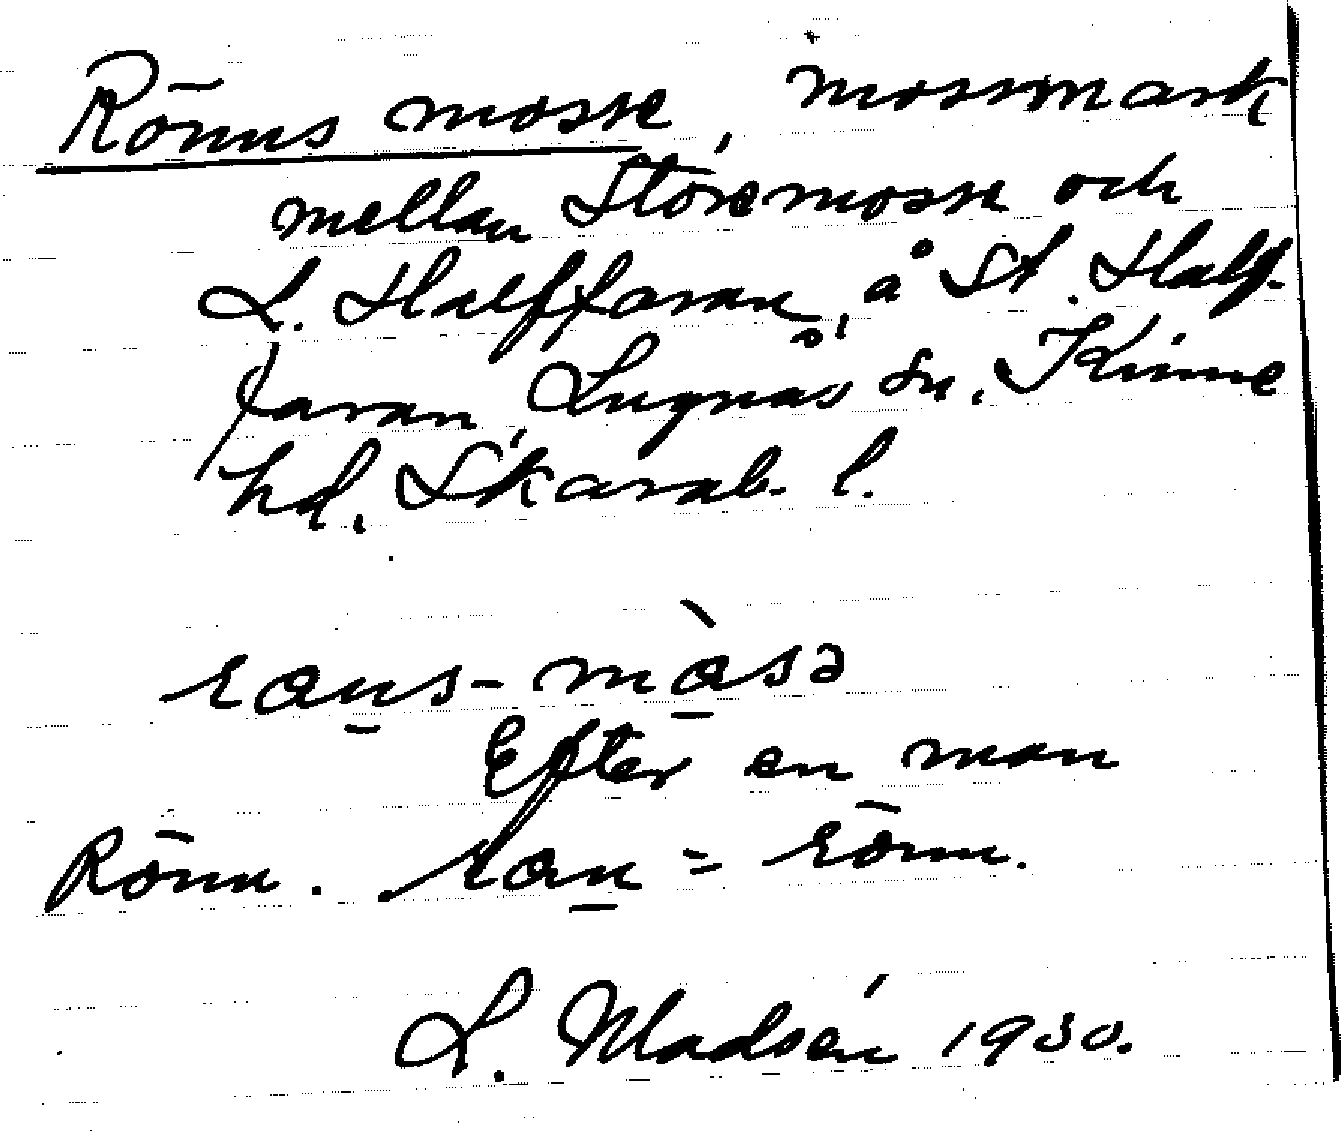 Rönns mosse, mossmark
mellan Storemosse och
L. Halffaran, å St. Half-
faran, Lugnås sn. Kinne
hd. Skarab. l.
rans-màsə
Efter en man
Rönn. ran = rönn.
L. Madsén 1930.